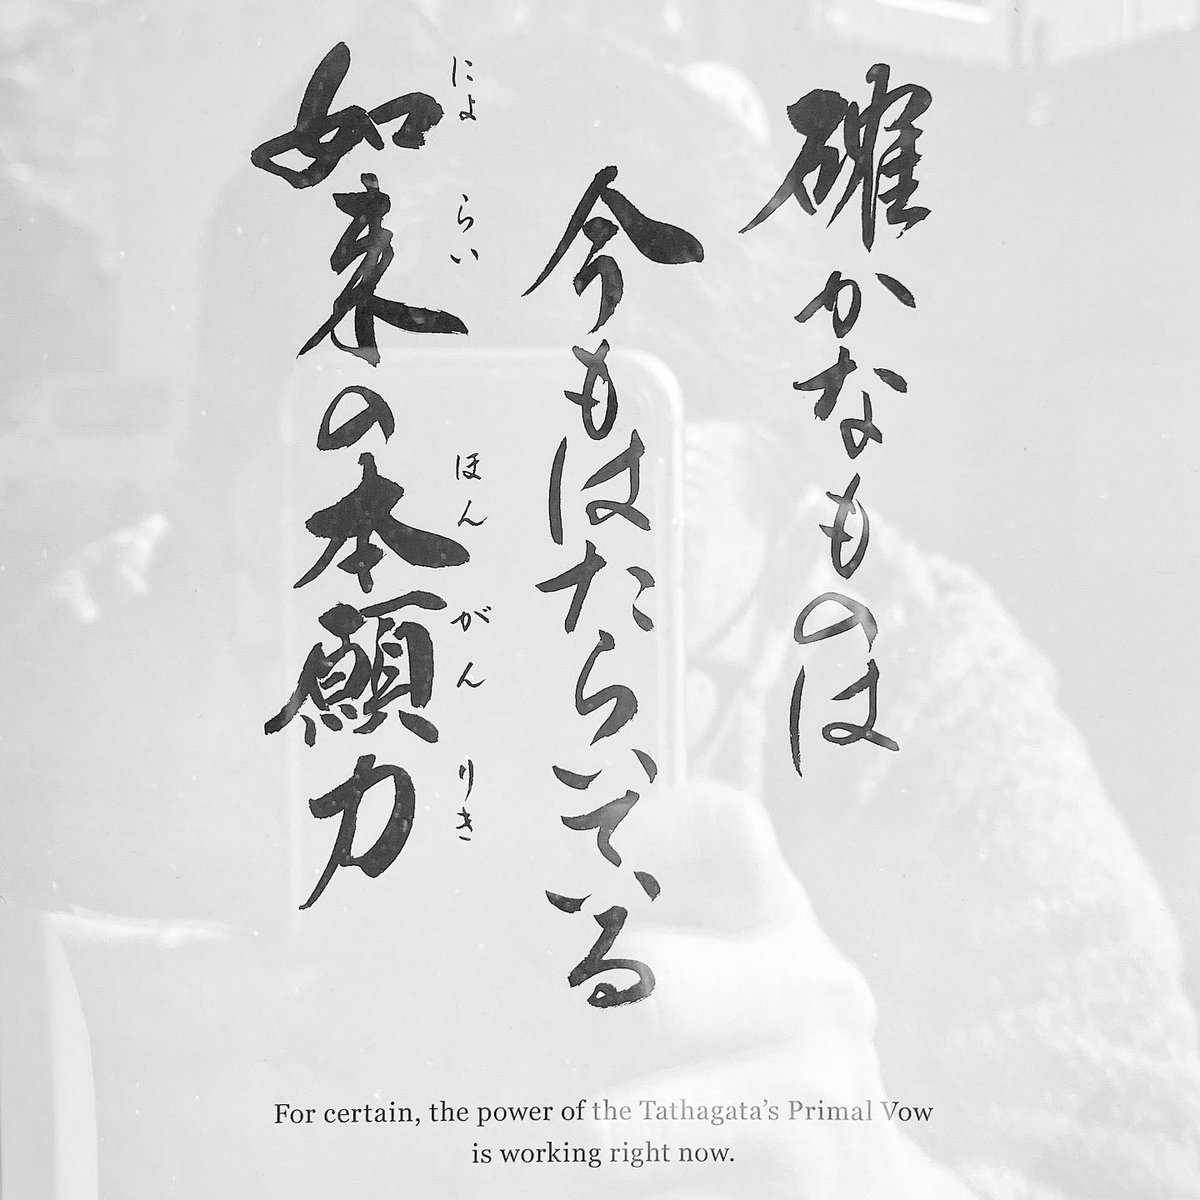 確かなものは
今もはたらいている
如来の本願力
にょらい
ほんがんりき
For certain, the power of the Tathagata’s Primal Vow
is working right now.